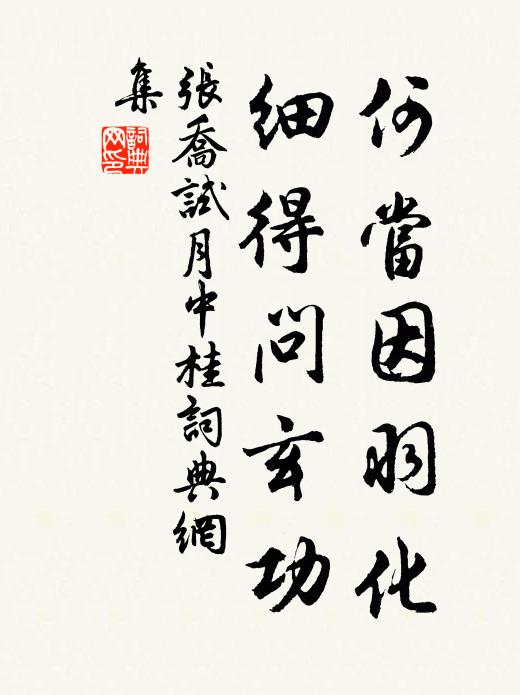 何當因羽化
細得問玄功
張喬試月中桂詞典網
集
詞典
网印